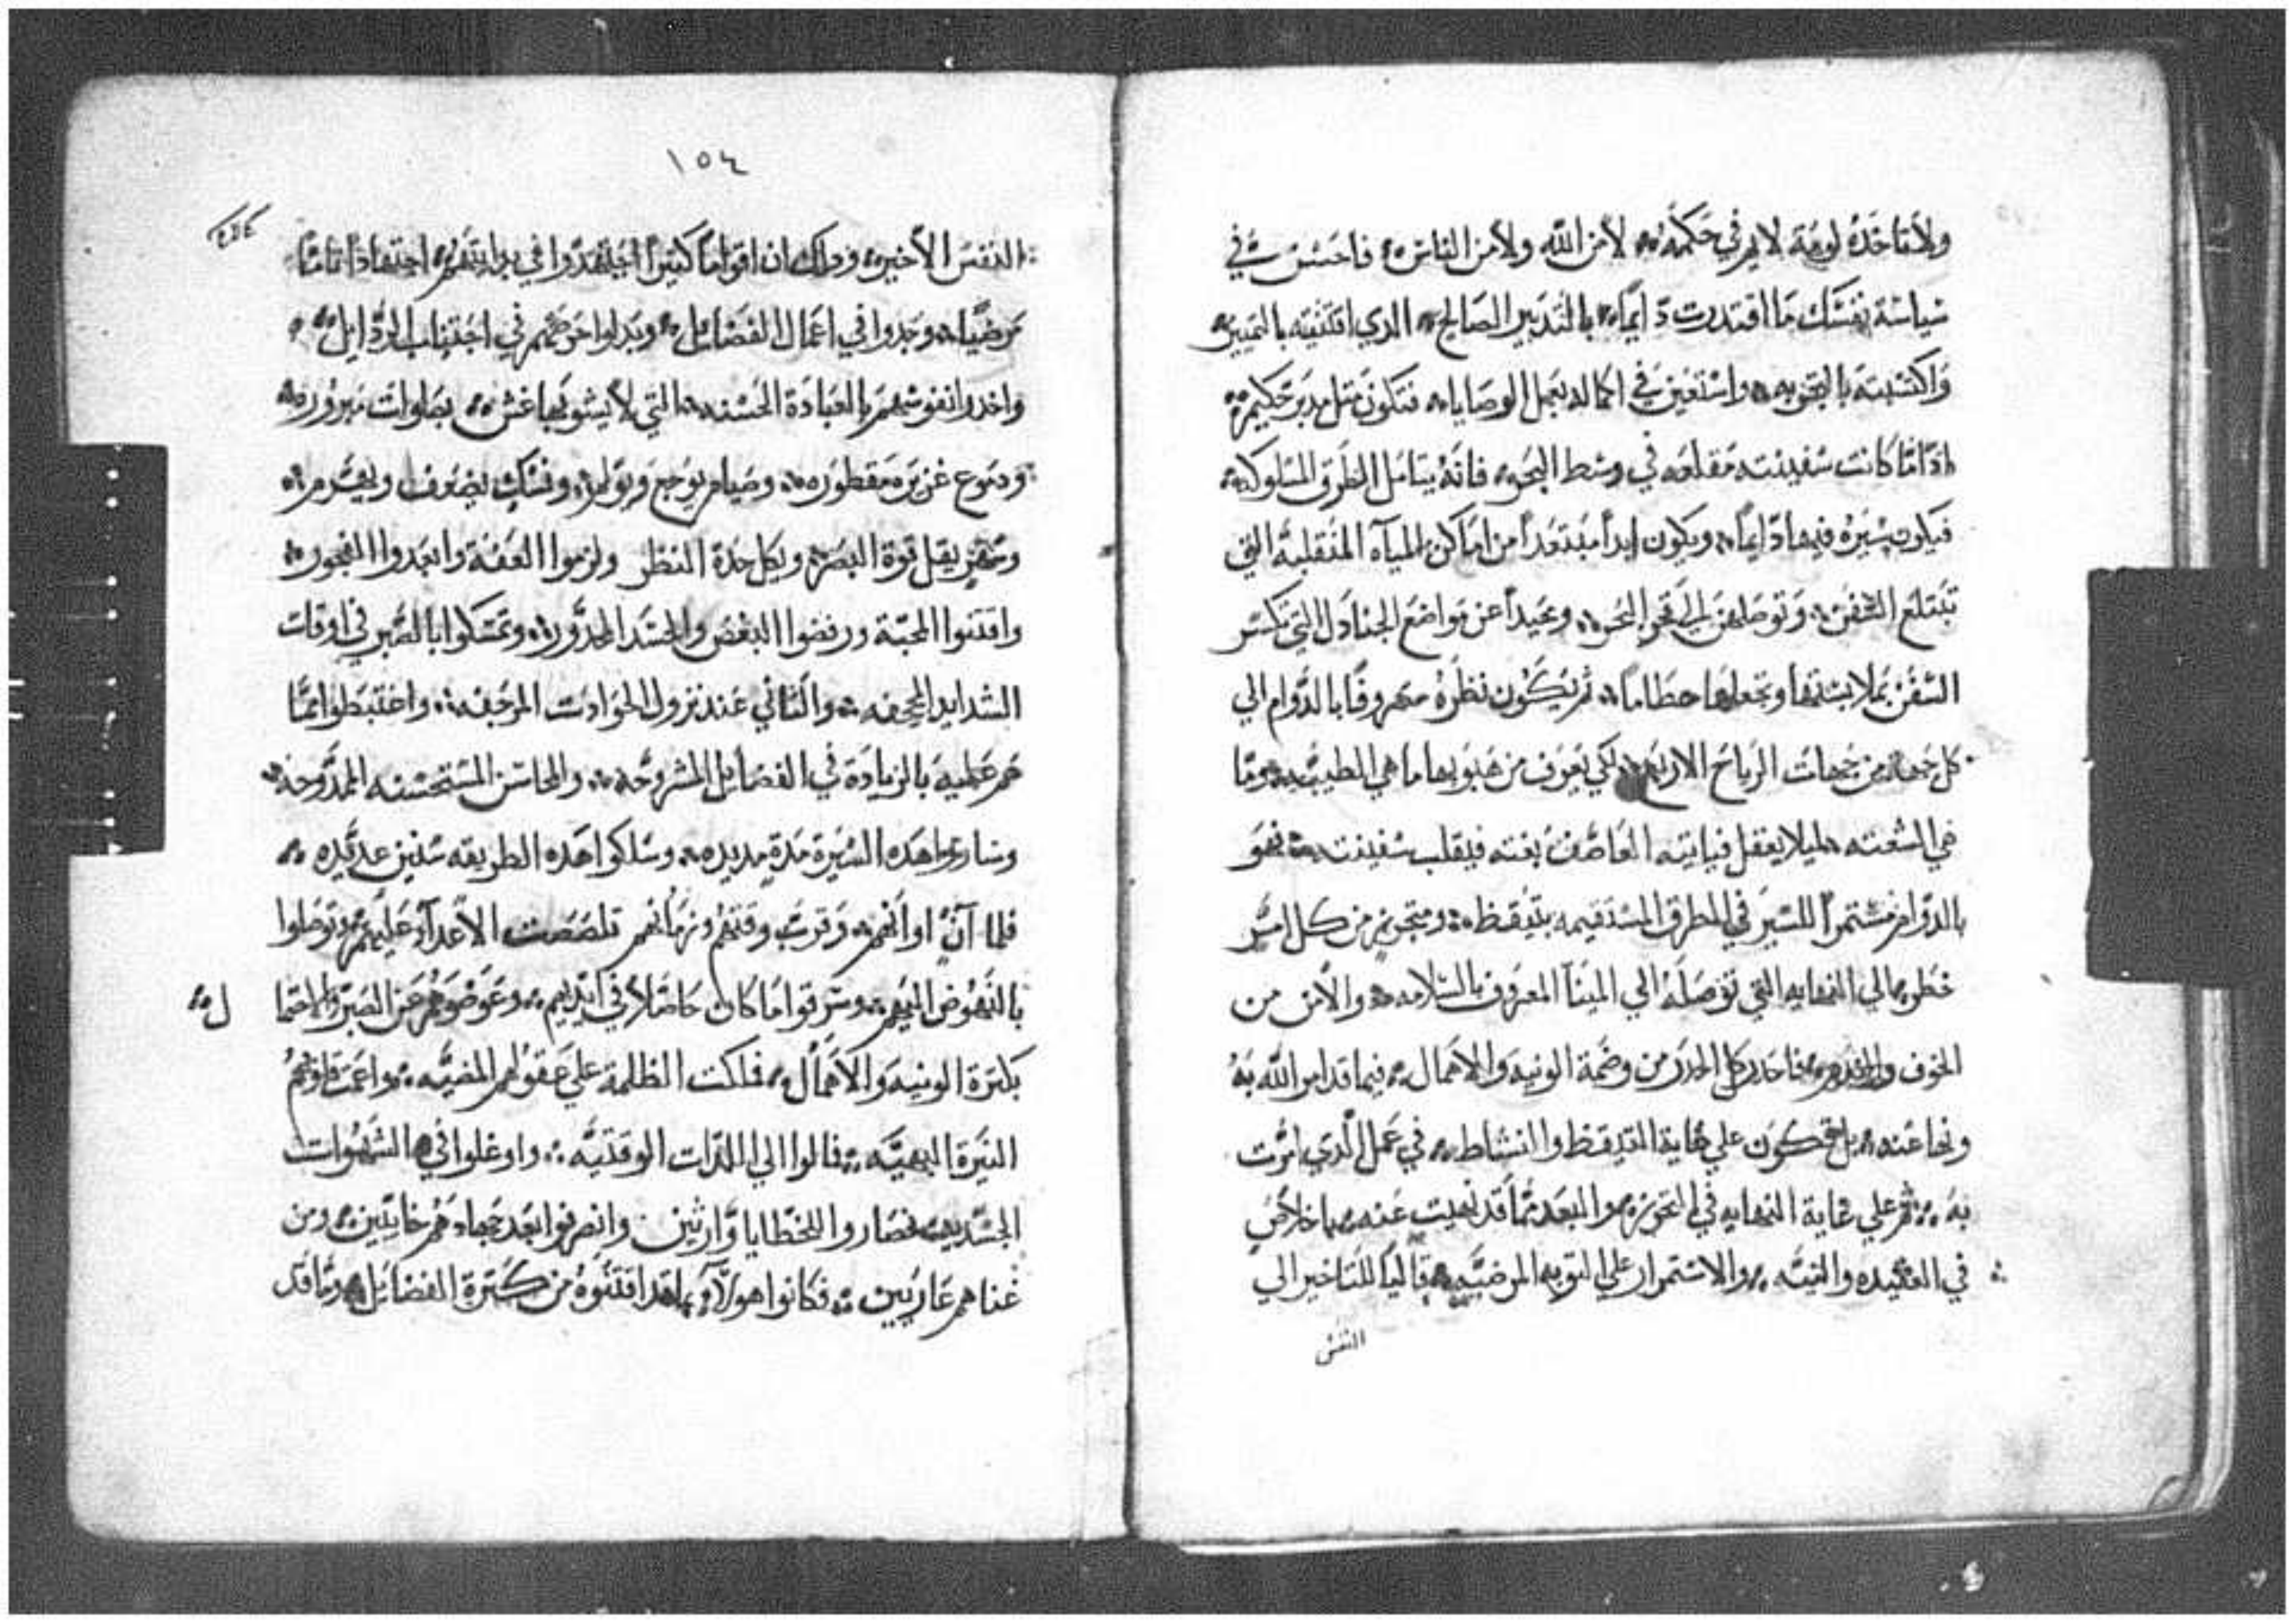 ولا تاخذه لومة لايم في حكمه لا من الله ولا من الناس فاحسن في
سياسة نفسك ما اقتدرت دايماً بالتدبير الصالح الدي اقتنيته بالتمييز
واكتسبته بالتجربه واستعين في اكماله بعمل الوصايا فتكون مثل مدبر حكيم
ادا ما كانت سفينته مقلعه في وسط البحر فانه يتامل الطرق المسلوكه
فيكون سيره فيها دايماً ويكون ابداً مبتعداً من اماكن المياه المنقلبة التي
تبتلع السفن وتوصلهن الي قعر البحر وبعيداً عن مواضع الجنادل التي تكسر
السفن بملابستها وتجعلها حطاماً ثم يكون نظره مصروفاً بالدوام الي
كل جهة من جهات الرياح الاربع لكي يعرف من هبوبها ما هي الطيبه وما
هي الشعته ليلا يغفل فياتيه العاصف بغته فيقلب سفينته فهو
بالدوام مستمراً للسير في الطرق المستقيمه بتيقظ وتحريز من كل امر
خطر الي النهايه التي توصله الي المينا المعروف بالسلامه والامن من
الخوف فاحدر كل الحدر من وضمة الونيه والاهمال فيما قد امر الله به
ونها عنه بل تكون علي غاية التيقظ والنشاط في عمل الدي امرت
به ثم علي غاية النهايه في التحريز والبعد مما قد نهيت عنه باخلاص
في العقيده والنيه والاستمرار علي التوبه المرضيه قاليا للتاخير الي
النفس
١٥٤
النفس الاخير ودلك ان اقواما كثيراً اجتهدوا في بدايتهم اجتهاداً تاماً
مرضياً وجدوا في اعمال الفضايل وبدلوا حرصهم في اجتناب الردايل
واخدوا نفوسهم بالعبادة الحسنه التي لا يشوبها غش بصلوات مبروره
ودموع غزيره مقطوره وصيام يوجع ويولم ونسك يضعف ويهدم
وسهر يقل قوة البصر ويكل حدة النظر ولزموا العفة وابعدوا الفجور
واقتنوا المحبة ورفضوا البغض والحسد وتمسكوا بالصبر في اوقات
الشدايد المجحفه والتاني عند نزول الحوادت المرجفه واغتبطوا بما
هم عليه بالزيادة في الفضايل المشروحه والمحاسن المستحسنه الممدوحه
وساروا هده السيرة مدة مديده وسلكوا هده الطريقه سنين عديده
فلما آن اوانهم وقرب وقتهم وزمانهم تلصصت الاعدآ عليهم وتوصلوا
بالنهوض اليهم وسرقوا ما كان حاصلاً في ايديهم وعوضوهم عن الصبر والاحتما
ل
بكترة الونيه والاهمال فملكت الظلمة علي عقولهم المضيه واعمت قلوبهم
النيرة البهيه فمالوا الي اللدات الوقتيه واوغلوا في الشهوات
الجسديه فصاروا للخطايا وارثين وانصرفوا بعد جهادهم خايبين ومن
غناهم عاريين فكانوا هولاء بما قد اقتنوه من كترة الفضايل وما قد